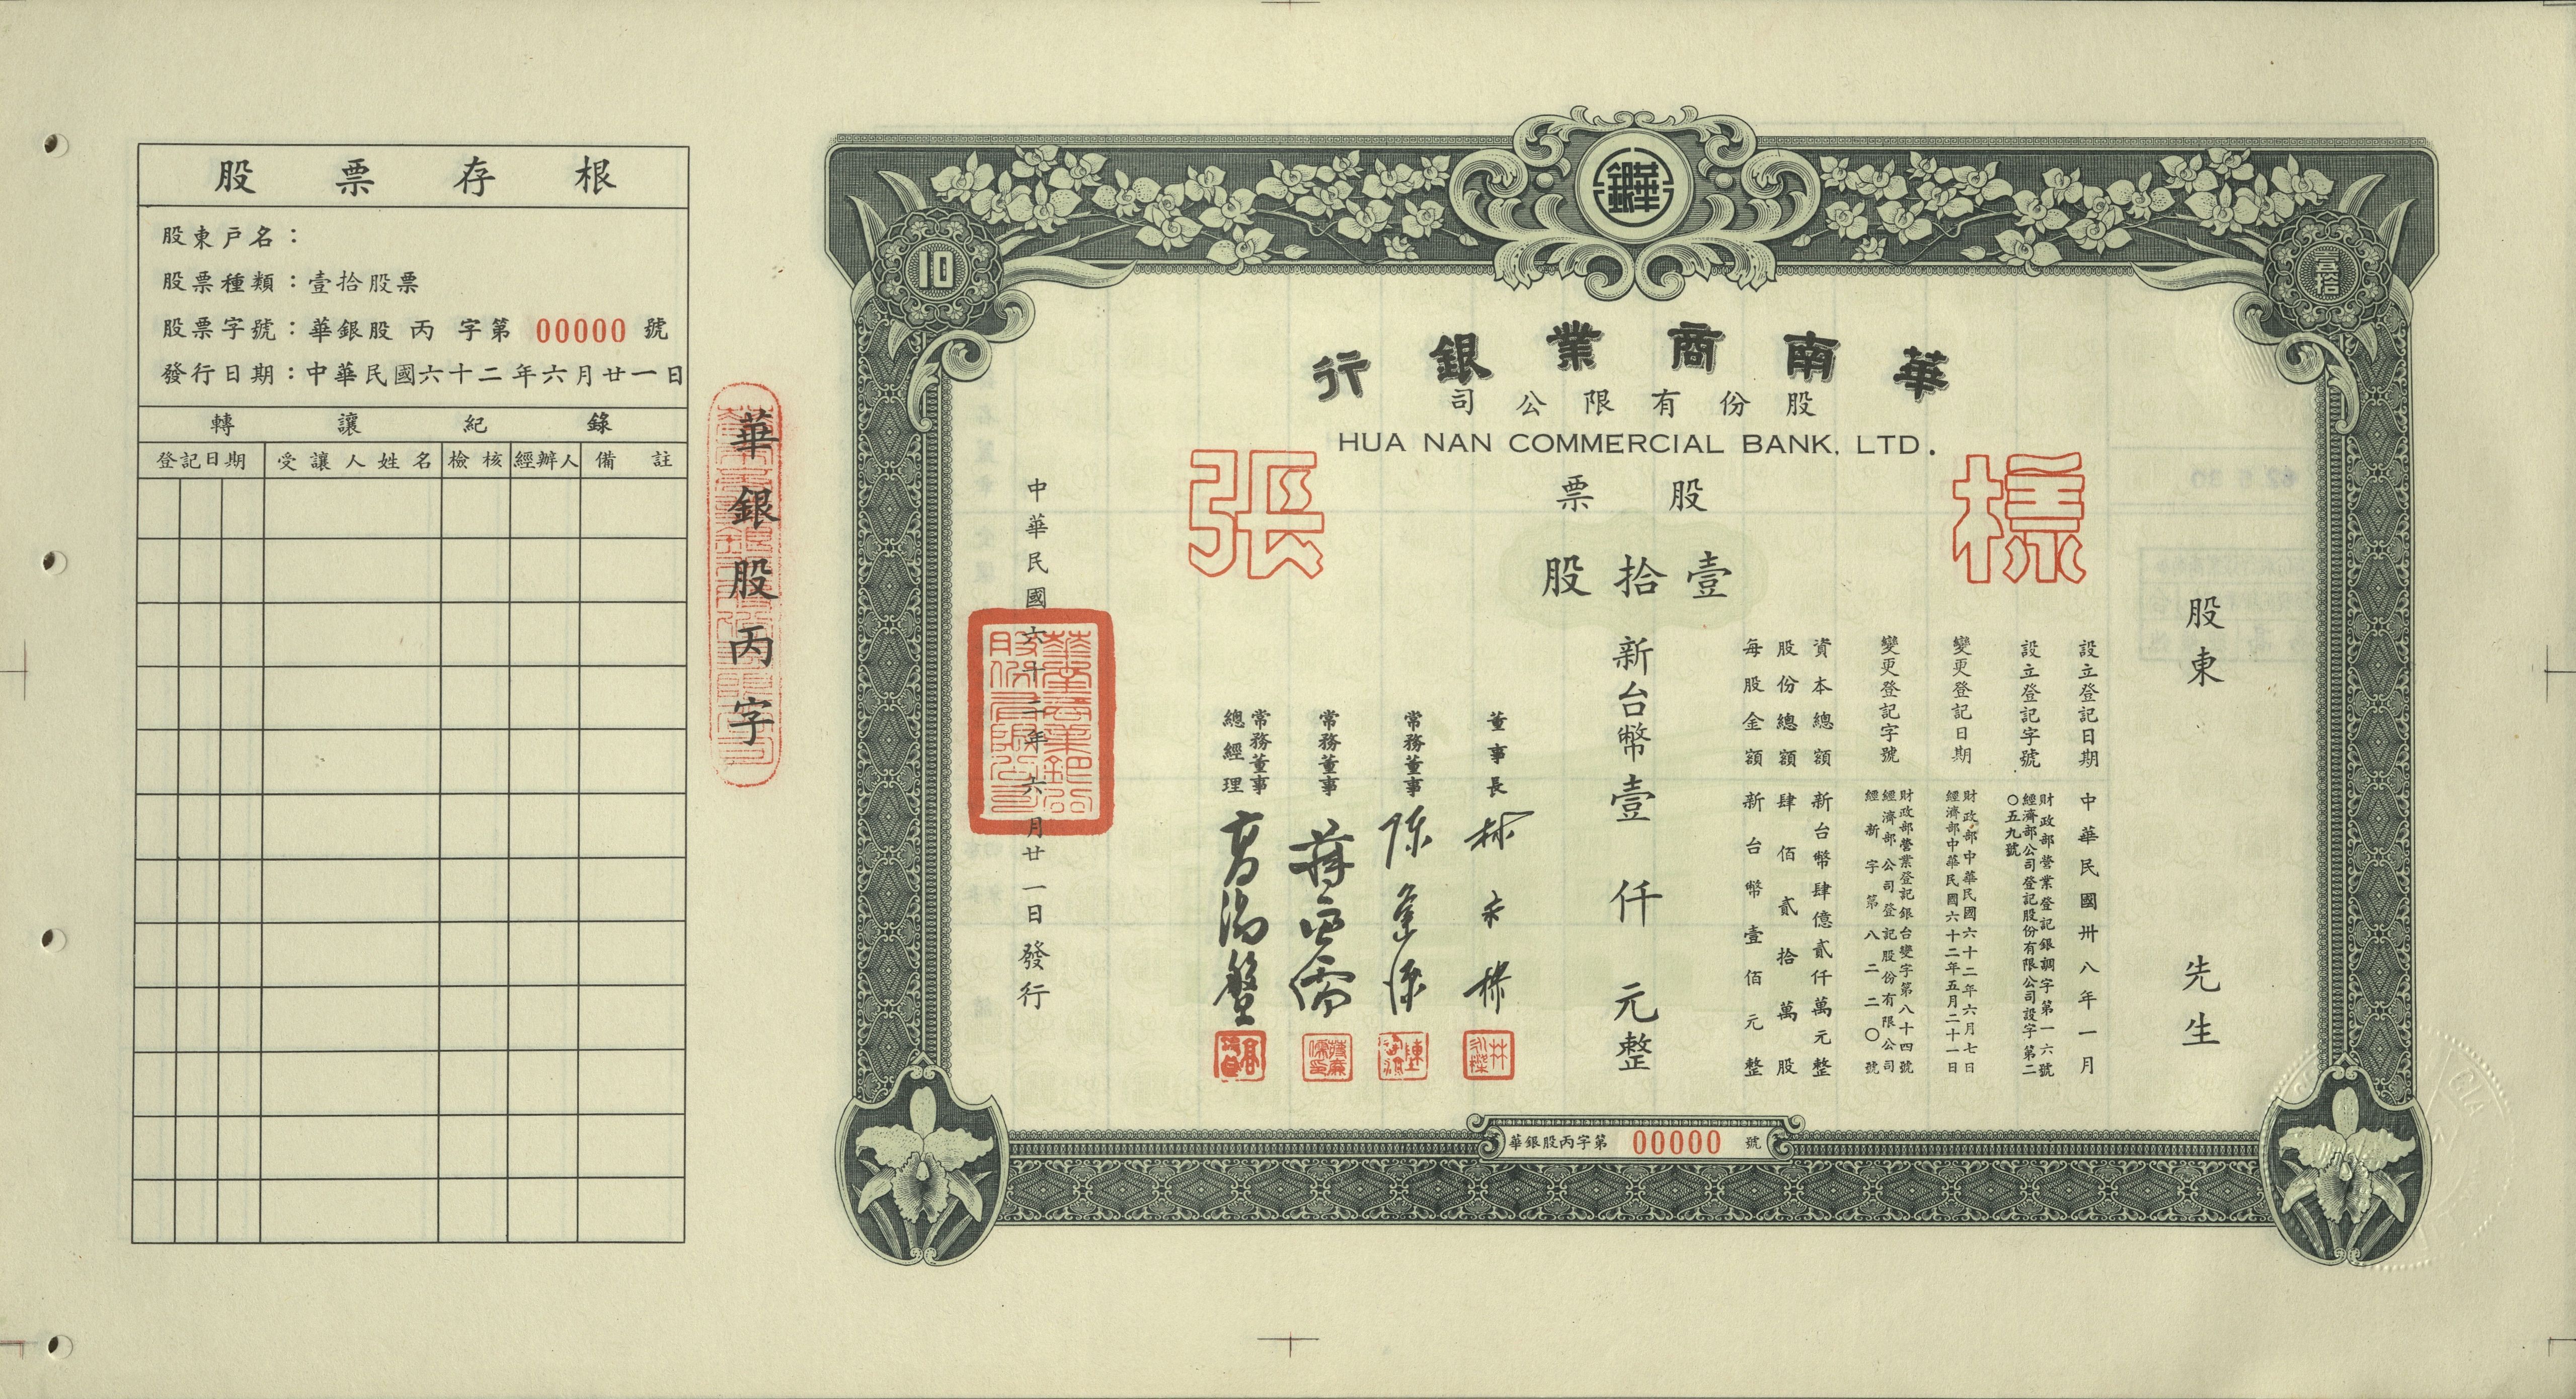 股票存根
股東戶名：
股票種類：壹拾股票
股票字號：華銀股 丙 字第 00000 號
發行日期：中華民國六十二年六月廿一日
轉讓紀錄
登記日期 受讓人姓名 檢核 經辦人 備註
華銀股丙字
10
壹拾
華銀
華南商業銀行
股份有限公司
HUA NAN COMMERCIAL BANK, LTD.
樣張
股票
壹拾股
股東 先生
設立登記日期 中華民國卅八年一月
設立登記字號 財政部營業登記銀調字第一六號
經濟部公司登記股份有限公司設字第二
〇五九號
變更登記日期 財政部中華民國六十二年六月七日
經濟部中華民國六十二年五月二十一日
變更登記字號 財政部營業登記銀台變字第八十四號
經濟部公司登記股份有限公司
經新字第八二二〇號
資本總額 新台幣肆億貳仟萬元整
股份總額 肆佰貳拾萬股
每股金額 新台幣壹佰元整
新台幣壹仟元整
董事長
常務董事
常務董事
常務董事
總經理
中華民國六十二年六月廿一日發行
華南商業銀行股份有限公司
華銀股丙字第 00000 號